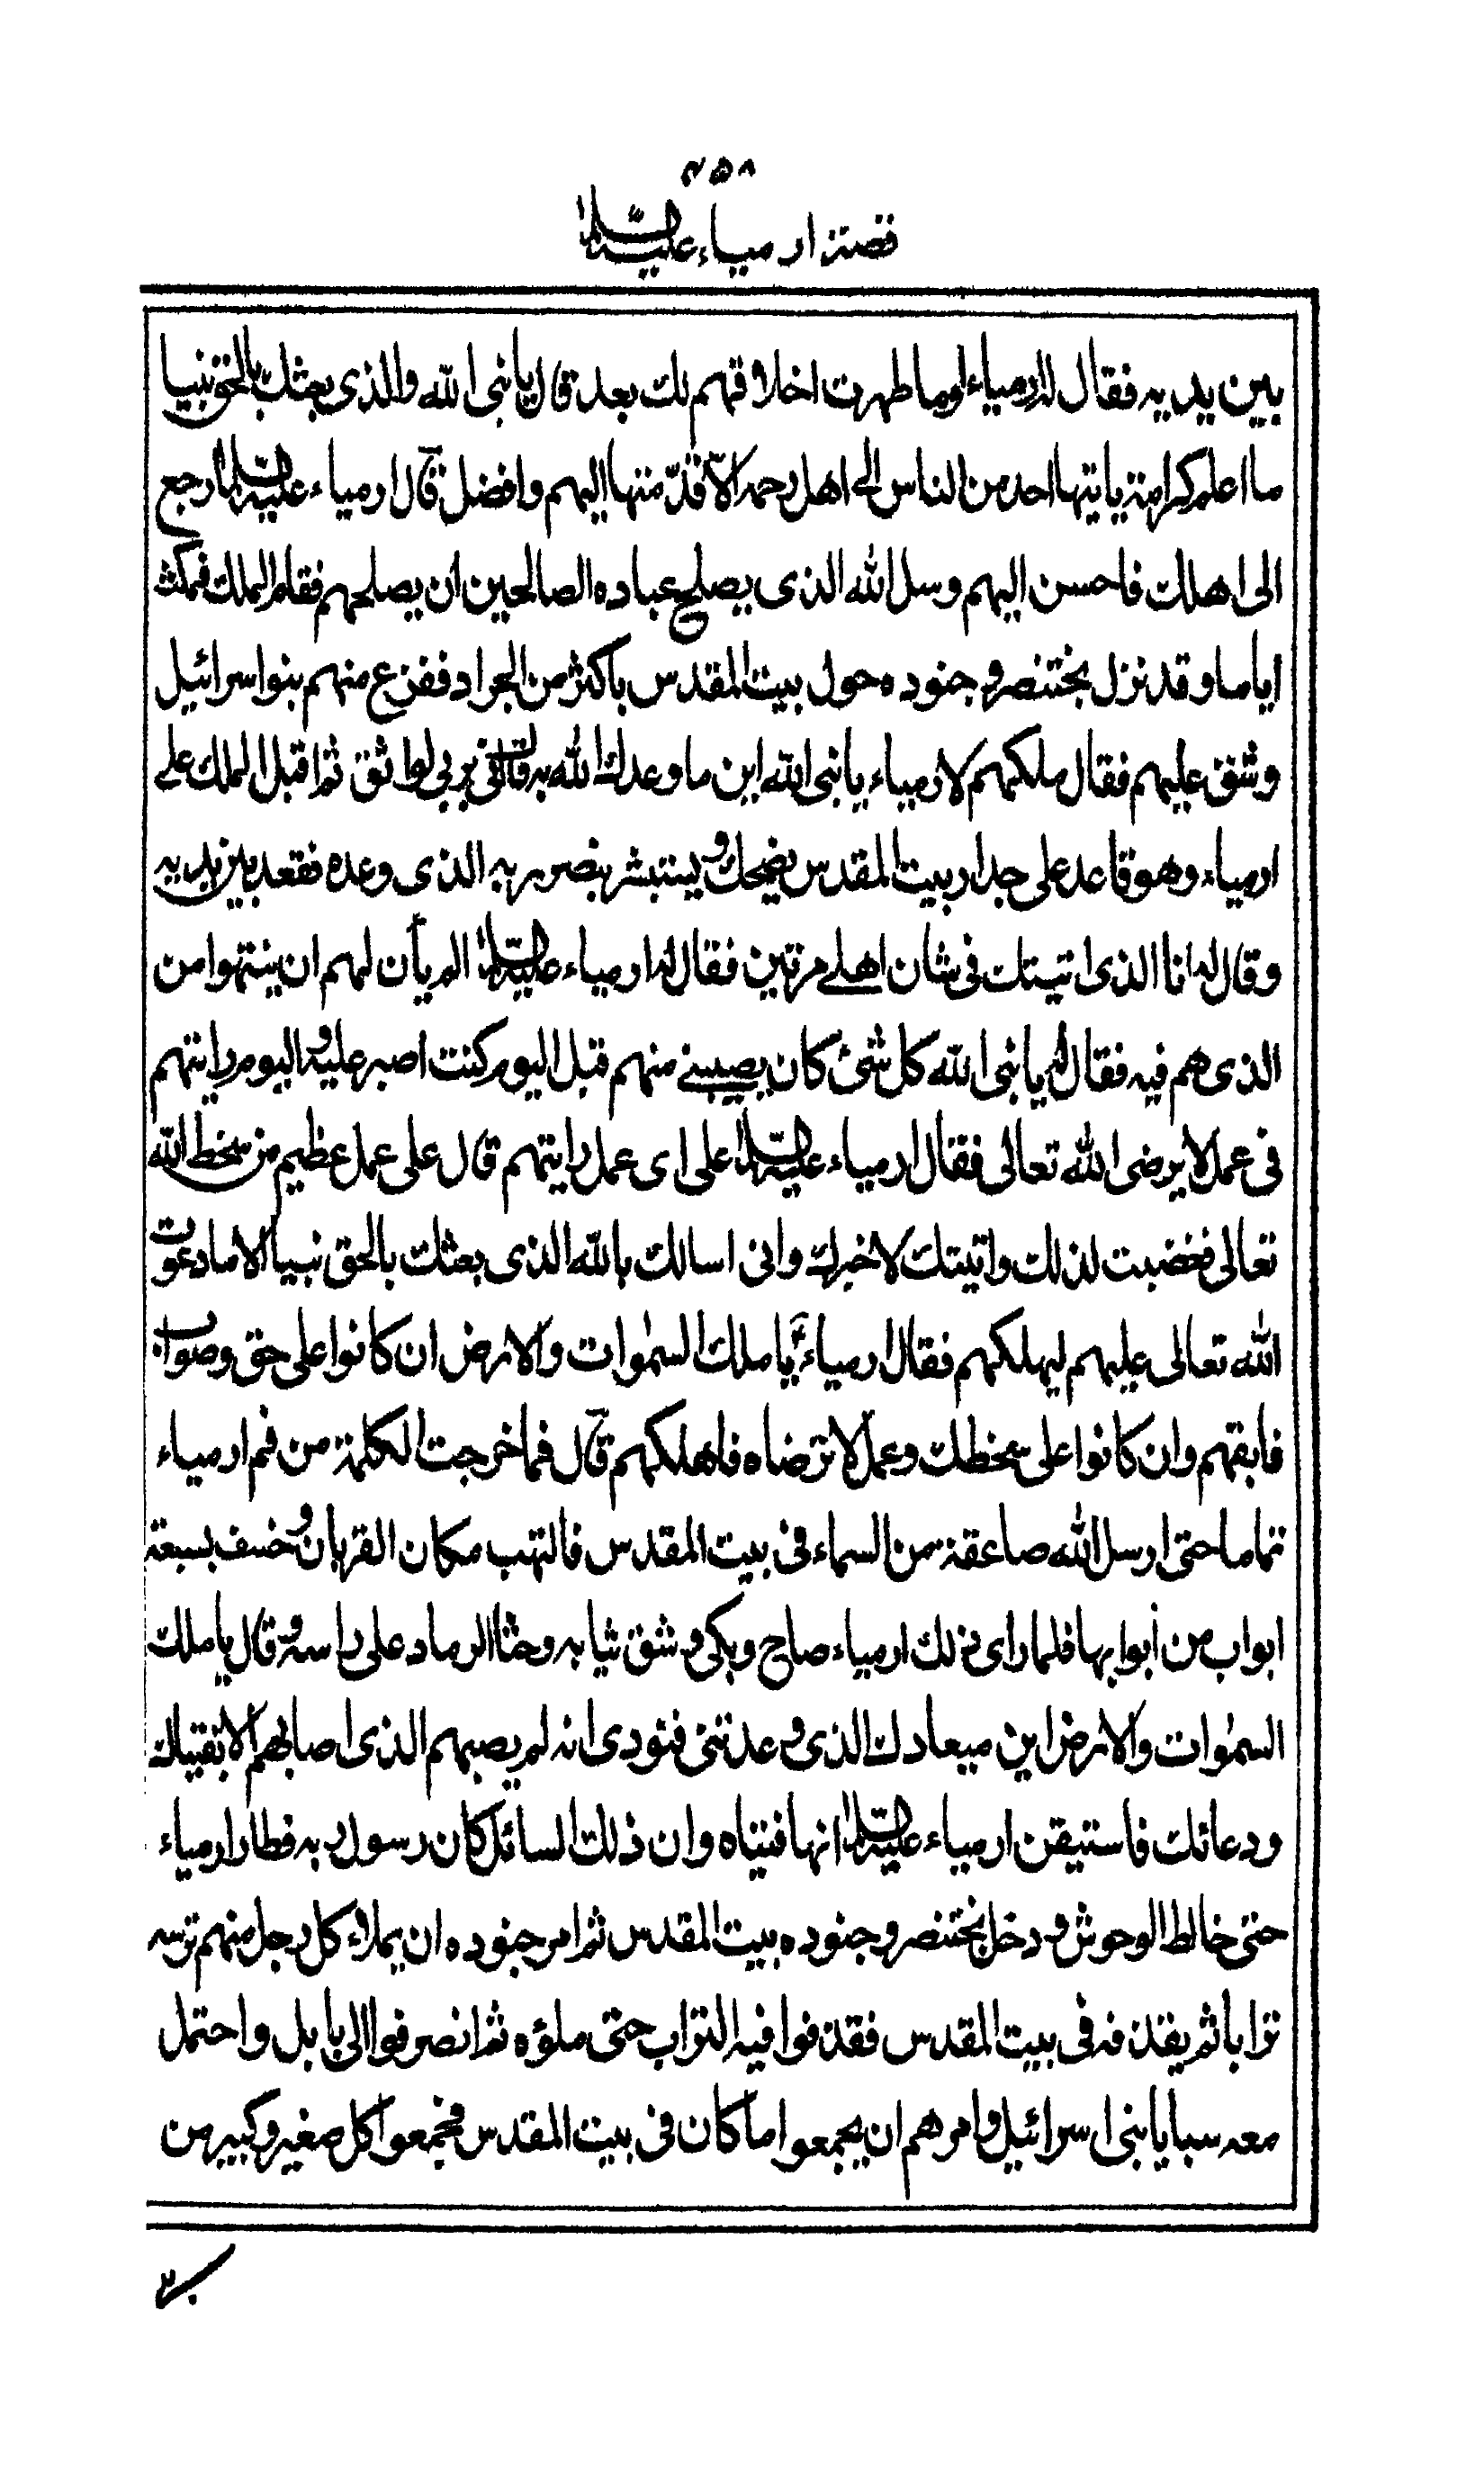 ٢٥٨
قصة ارمياء عليه السلام
بين يديه فقال له ارمياء اوما طهرت اخلاقهم لك بعد قال يا نبى الله والذى بعثك بالحق نبيا
ما اعلم كرامة ياتيها احد من الناس الى اهل رحمه الا قدمتها اليهم وافضل قال ارمياء عليه السلام ارجع
الى اهلك فاحسن اليهم وسل الله الذى يصلح عباده الصالحين ان يصلحهم فقام الملك فمكث
اياما وقد نزل بختنصر وجنوده حول بيت المقدس باكثر من الجراد ففزع منهم بنو اسرائيل
وشق عليهم فقال ملكهم لارمياء يا نبى الله اين ما وعدك الله به قال انى بربى لواثق ثم اقبل الملك على
ارمياء وهو قاعد على جدار بيت المقدس يضحك ويستبشر بنصر ربه الذى وعده فقعد بين يديه
وقال له انا الذى اتيتك فى شان اهلى مرتين فقال له ارمياء عليه السلام الم يأن لهم ان ينتهوا من
الذى هم فيه فقال له يا نبى الله كل شئ كان يصيبنى منهم قبل اليوم كنت اصبر عليه واليوم رايتهم
فى عمل لا يرضى الله تعالى فقال ارمياء عليه السلام على اى عمل رايتهم قال على عمل عظيم من سخط الله
تعالى فغضبت لذلك واتيتك لاخبرك وانى اسالك بالله الذى بعثك بالحق نبيا الا ما دعوت
الله تعالى عليهم ليهلكهم فقال ارمياء يا ملك السموات والارض ان كانوا على حق وصواب
فابقهم وان كانوا على سخطك وعمل لا ترضاه فاهلكهم قال فما خرجت الكلمة من فم ارمياء
تماما حتى ارسل الله صاعقة من السماء فى بيت المقدس فالتهب مكان القربان وخسف بسبعة
ابواب من ابوابها فلما راى ذلك ارمياء صاح وبكى وشق ثيابه وحثا الرماد على راسه وقال يا ملك
السموات والارض اين ميعادك الذى وعدتنى فنودى انه لم يصبهم الذى اصابهم الا بفتياك
ودعائك فاستيقن ارمياء عليه السلام انها فتياه وان ذلك السائل كان رسول ربه فطار ارمياء
حتى خالط الوحوش ودخل بختنصر وجنوده بيت المقدس ثم امر جنوده ان يملاء كل رجل منهم ترسه
ترابا ثم يقذفه فى بيت المقدس فقذفوا فيه التراب حتى ملؤه ثم انصرفوا الى بابل واحتمل
معه سبايا بنى اسرائيل وامرهم ان يجمعوا ما كان فى بيت المقدس فجمعوا كل صغير وكبير من